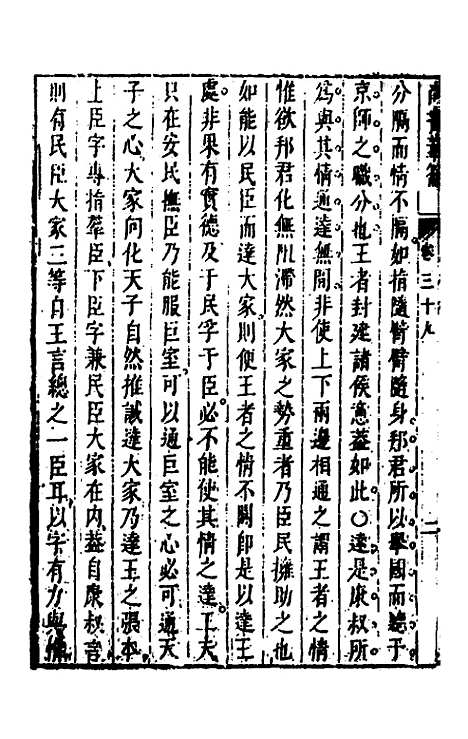 卷三十八
二
分隔而情不隔如指隨臂臂隨身邦君所以舉國而聽于
京師之職分也王者封建諸侯意蓋如此○達是康叔所
爲與其情通達無間非使上下兩邊相通之謂王者之情
惟欲邦君化無阻滯然大家之勢重者乃臣民擁助之也
如能以民臣而達大家則便王者之情不閡即是以達王
處非果有實德及于民孚于臣必不能使其情之達王天
只在安民撫臣乃能服巨室可以通巨室之心必可通天
子之心大家向化天子自然推誠達大家乃達王之張本
上臣字專指羣臣下臣字兼民臣大家在内葢自康叔言
則有民臣大家三等自王言總之一臣耳以字有力與惟